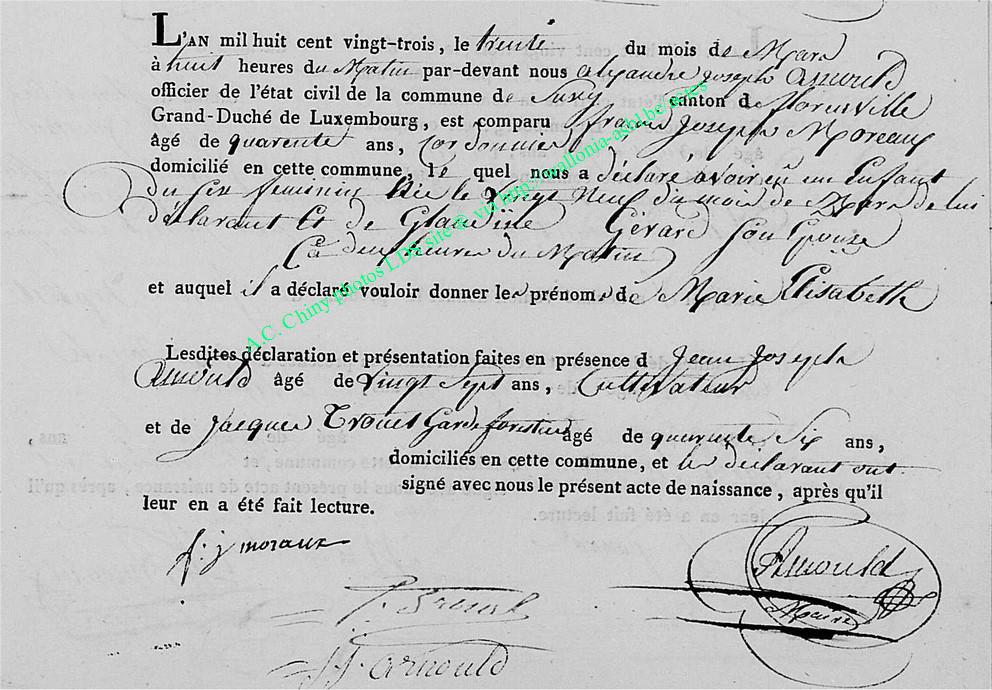 L'AN mil huit cent vingt-trois, le trente du mois de Mars
à huit heures du Matin par-devant nous alexandre joseph arnould
officier de l'état civil de la commune de Suxy canton de florenville
Grand-Duché de Luxembourg, est comparu françois Joseph Moreaux
âgé de quarente ans, Cordonnier
domicilié en cette commune, le quel nous a déclaré avoir eu un Enfant
du sex feminin Née le Vingt Neuf du mois de Mars de lui
déclarant Et de Gérard Son Epouse
à deux heures du Matin
et auquel il a déclaré vouloir donner les prénoms de Marie Elisabeth
Lesdites déclaration et présentation faites en présence d Jean Joseph
Arnould âgé de Vingt Sept ans, Cultivateur
et de Jacques Garde forestier âgé de quarente Six ans,
domiciliés en cette commune, et le déclarant ont
signé avec nous le présent acte de naissance, après qu'il
leur en a été fait lecture.
f: j moraux
Arnould
Maire
J. J. arnould
A.C. Chiny photos LDS site @ via http://wallonia-asbl.be/actes